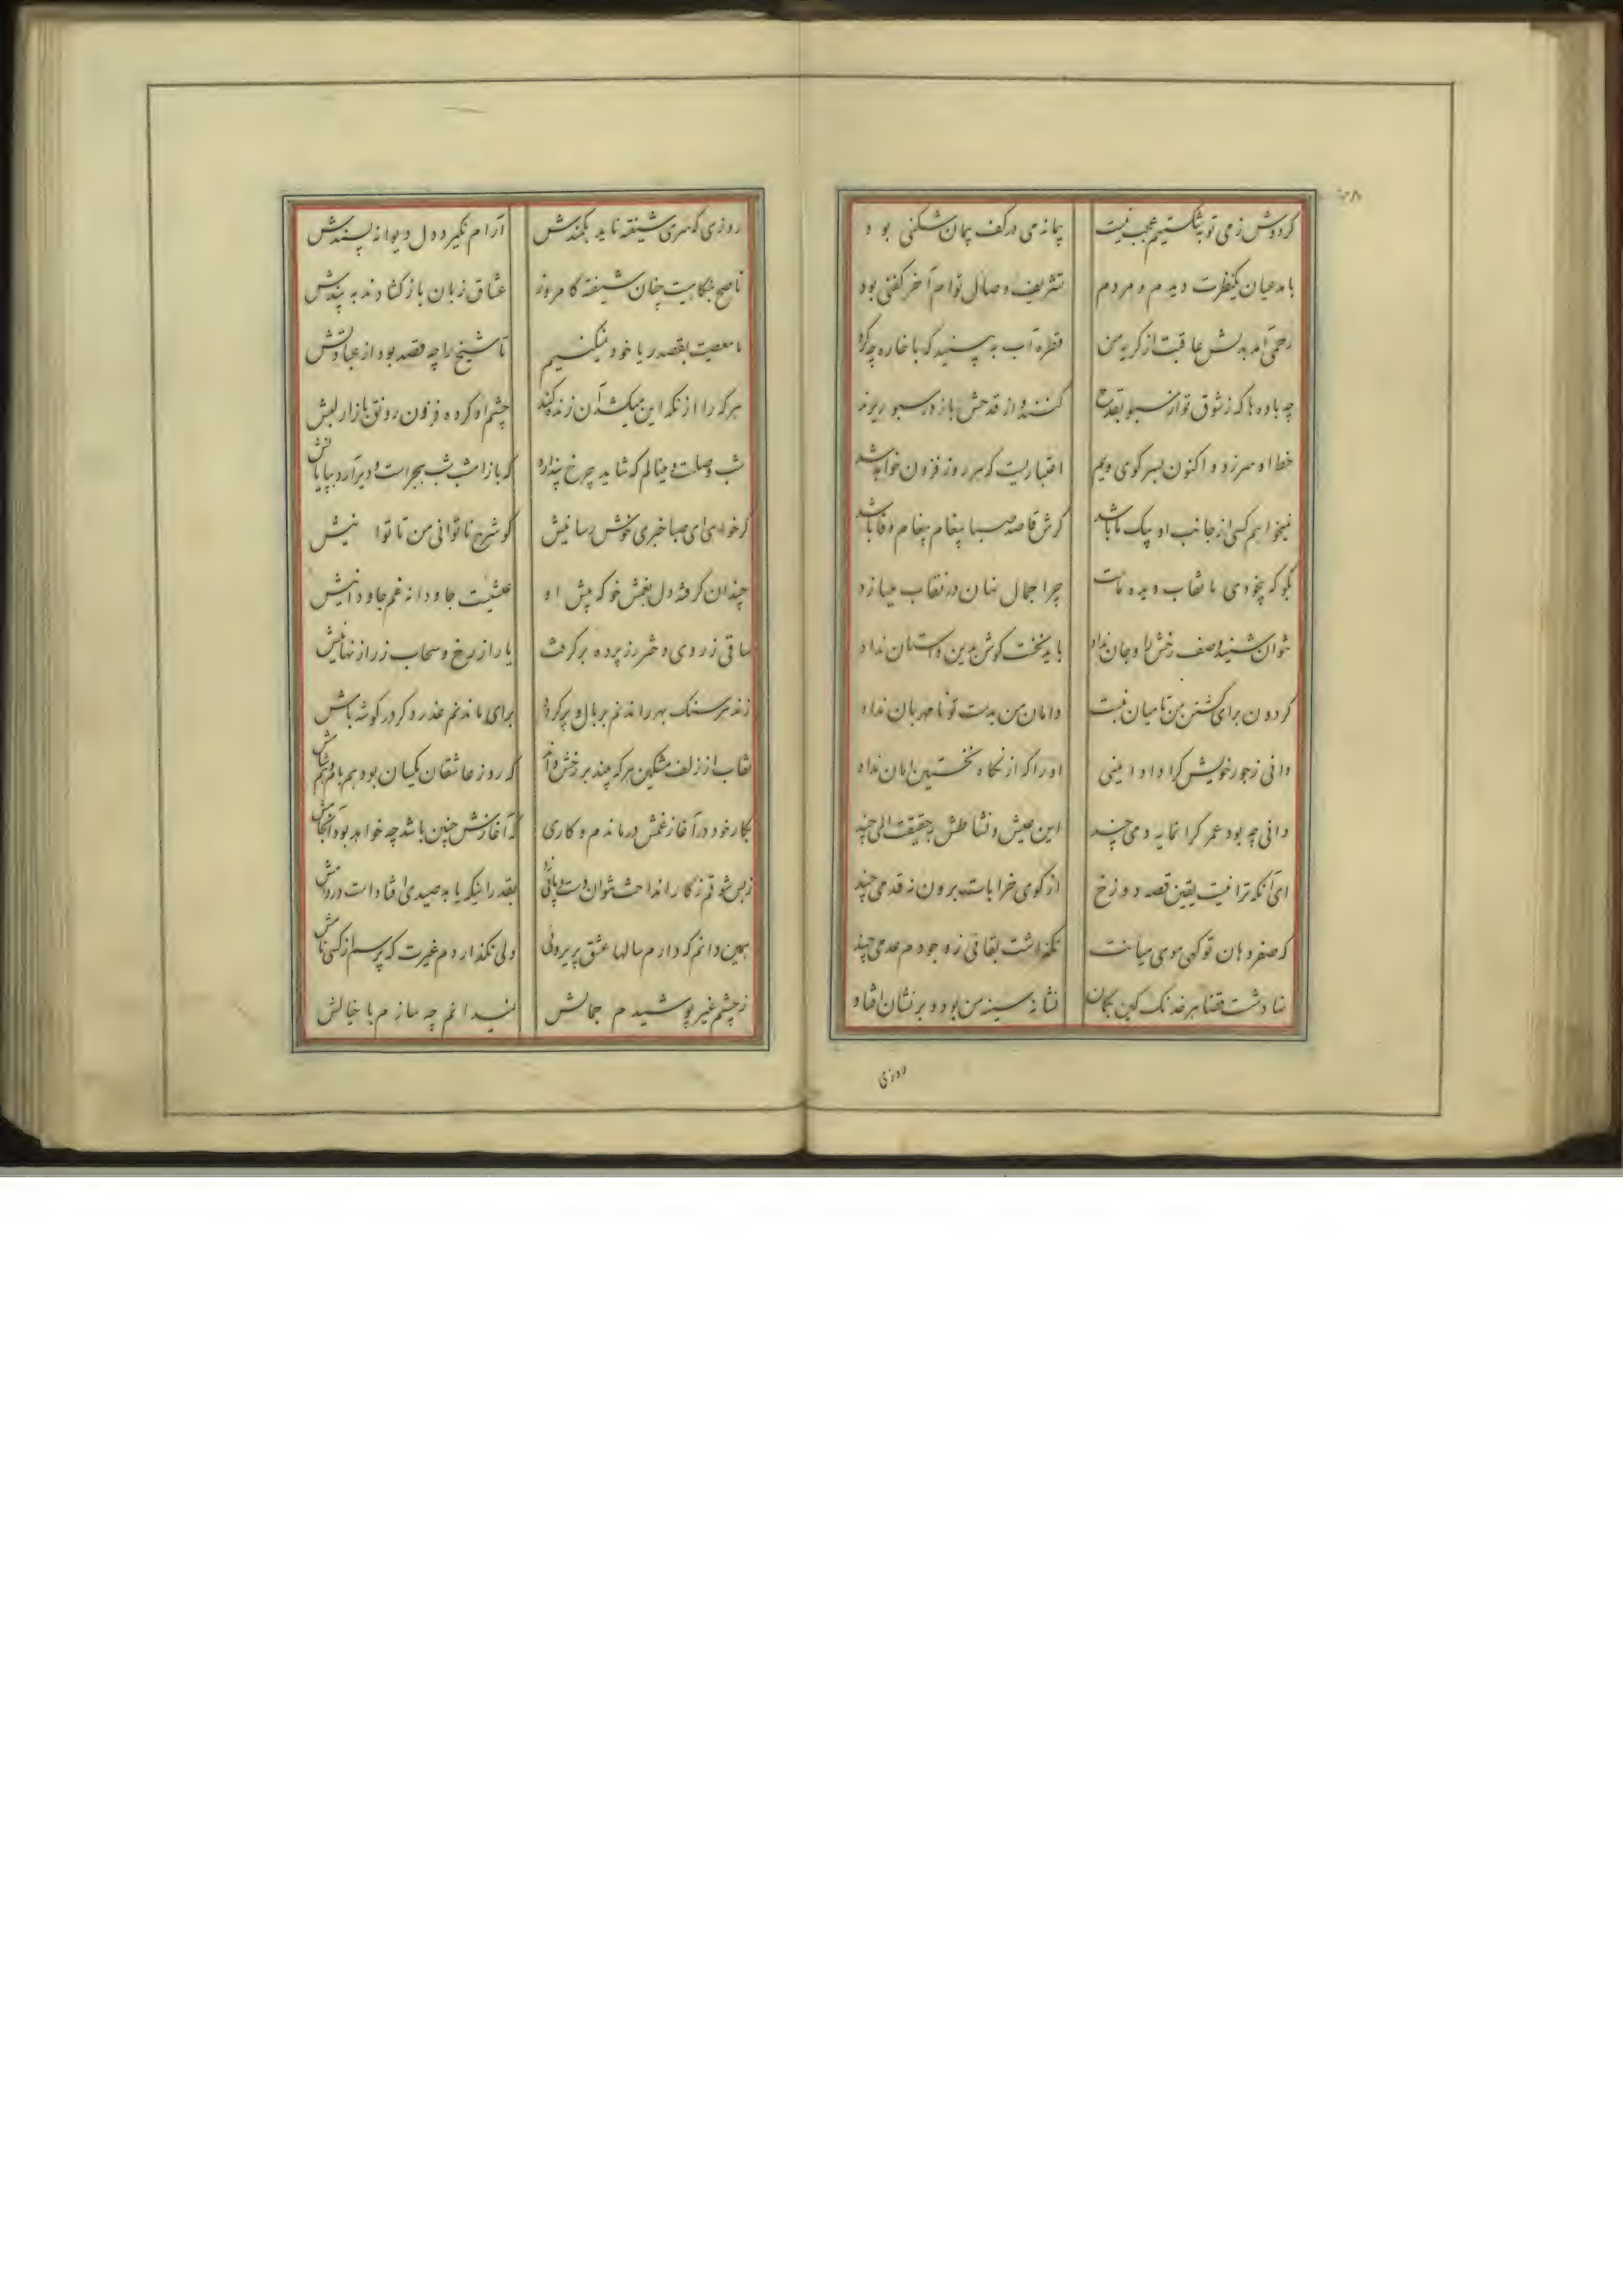 کر دوش ز می توبه شکستیم عجب نیست پیمانه می در کف پیمان شکنی بود
با مدعیان یکنظرت دیدم و مردم تشریف وصال توام آخر کفنی بود
رحمی آمد بدلش عاقبت از کریه من قطره آب به بینید که با خاره چه کرد
چه باده ها که ز شوق تو از سبو بقدح کنند و از قدحش باز در سبو ریزند
خط او سرزد و اکنون بسر کوی ویم اعتباریست که هر روز فزون خواهد شد
نمیخواهم کسی از جانب او پیک ما باشد کرش قاصد صبا پیغام پیغام وفا باشد
بگو که بیخودی ما نقاب دیده ماست چرا جمال نهان در نقاب میسازد
نتوان شنید وصف رخش را و جان نداد باید نخست گوش بدین داستان نداد
کردون برای کشتن من تا میان نبست دامان من بدست تو نامهربان نداد
دانی ز جور خویش کرا داد ایمنی او را که از نگاه نخستین امان نداد
دانی چه بود عمر کرانمایه دمی چند این عیش و نشاطش بحقیقت المی چند
ای آنکه ترا نیست یقین قصه دوزخ از کوی خرابات برون نه قدمی چند
که صفر دهان تو کهی موی میانت نگذاشت بقائی ز وجودم عدمی چند
ز شست قضا هر خدنک کین نشانه سینه من بود و بر نشان افتاد
روزی
روزی که سری شیفته ناید بکمندش آرام نگیرد دل دیوانه پسندش
ناصح بنگاهیت چنان شیفته کامروز عشاق زبان باز کشادند به پندش
ما معصیت بقصد ریا خود نمیکنیم تا شیخ را چه قصد بود از عبادتش
هر که را از نکه این میکشد آن زنده کند چشم او کرده فزون رونق بازار لبش
شب وصلست و مینالم که شاید چرخ پندارد که باز امشب شب هجرست و دیر آرد بپایانش
کر خواهی ای صبا خبری خوش رسانیش کو شرح ناتوانی من تا توانیش
چندان کرفته دل بغمش خو که پیش او عیشیست جاودانه غم جاودانیش
ساقی ز روی دختر رز پرده بر گرفت یا راز رخ و سحاب ز راز نهانیش
زند هر سنک بهر راندنم بر بال و پر کردد برای ماندنم عذر دکر در کوشه بامش
نقاب از زلف مشکین هر که بیند بر رخش داند که روز عاشقان یکسان بود هم بام و هم شامش
بکار خود در آغاز غمش درماندم و کاری که آغازش چنین باشد چه خواهد بود انجامش
همین دانم که دارم سالها عشق پریروئی ولی نگذاردم غیرت که پرسم از کسی نامش
ز چشم غیر پوشیدم جمالش نمیدانم چه سازم با خیالش